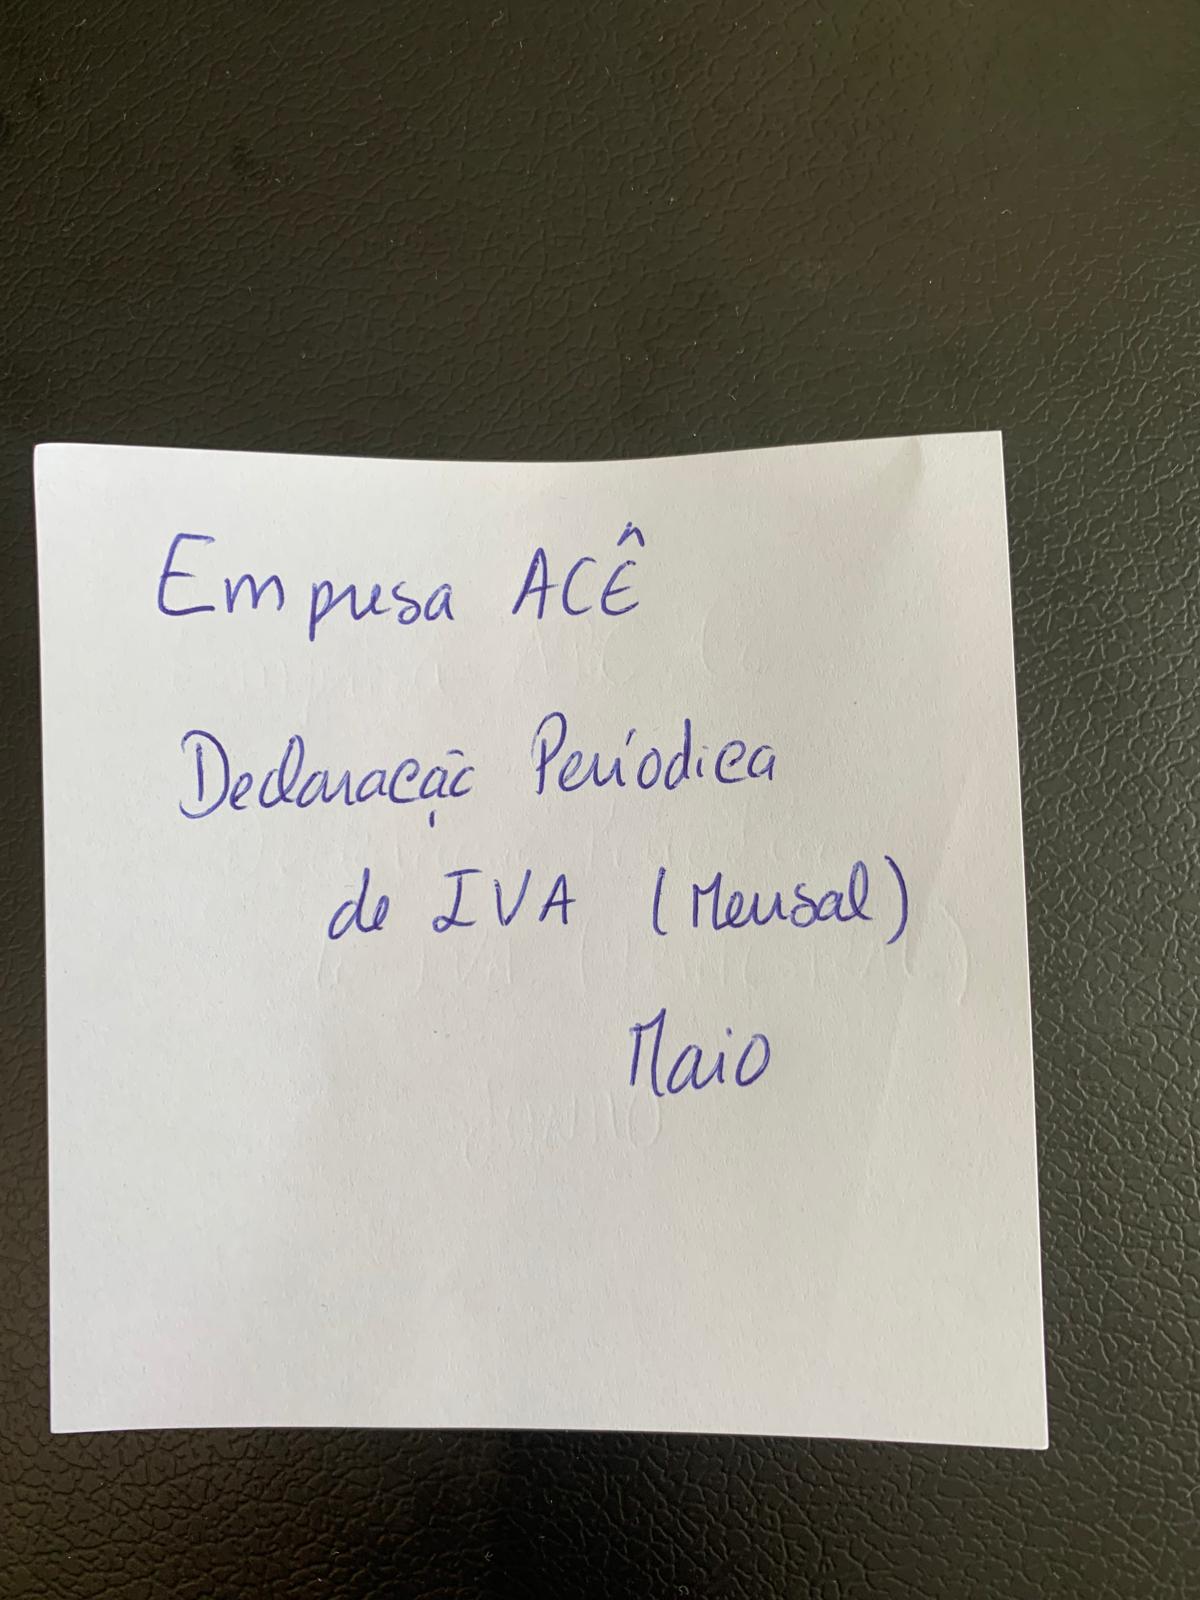 Empresa ACÊ
Declaração Periódica
de IVA (Mensal)
Maio